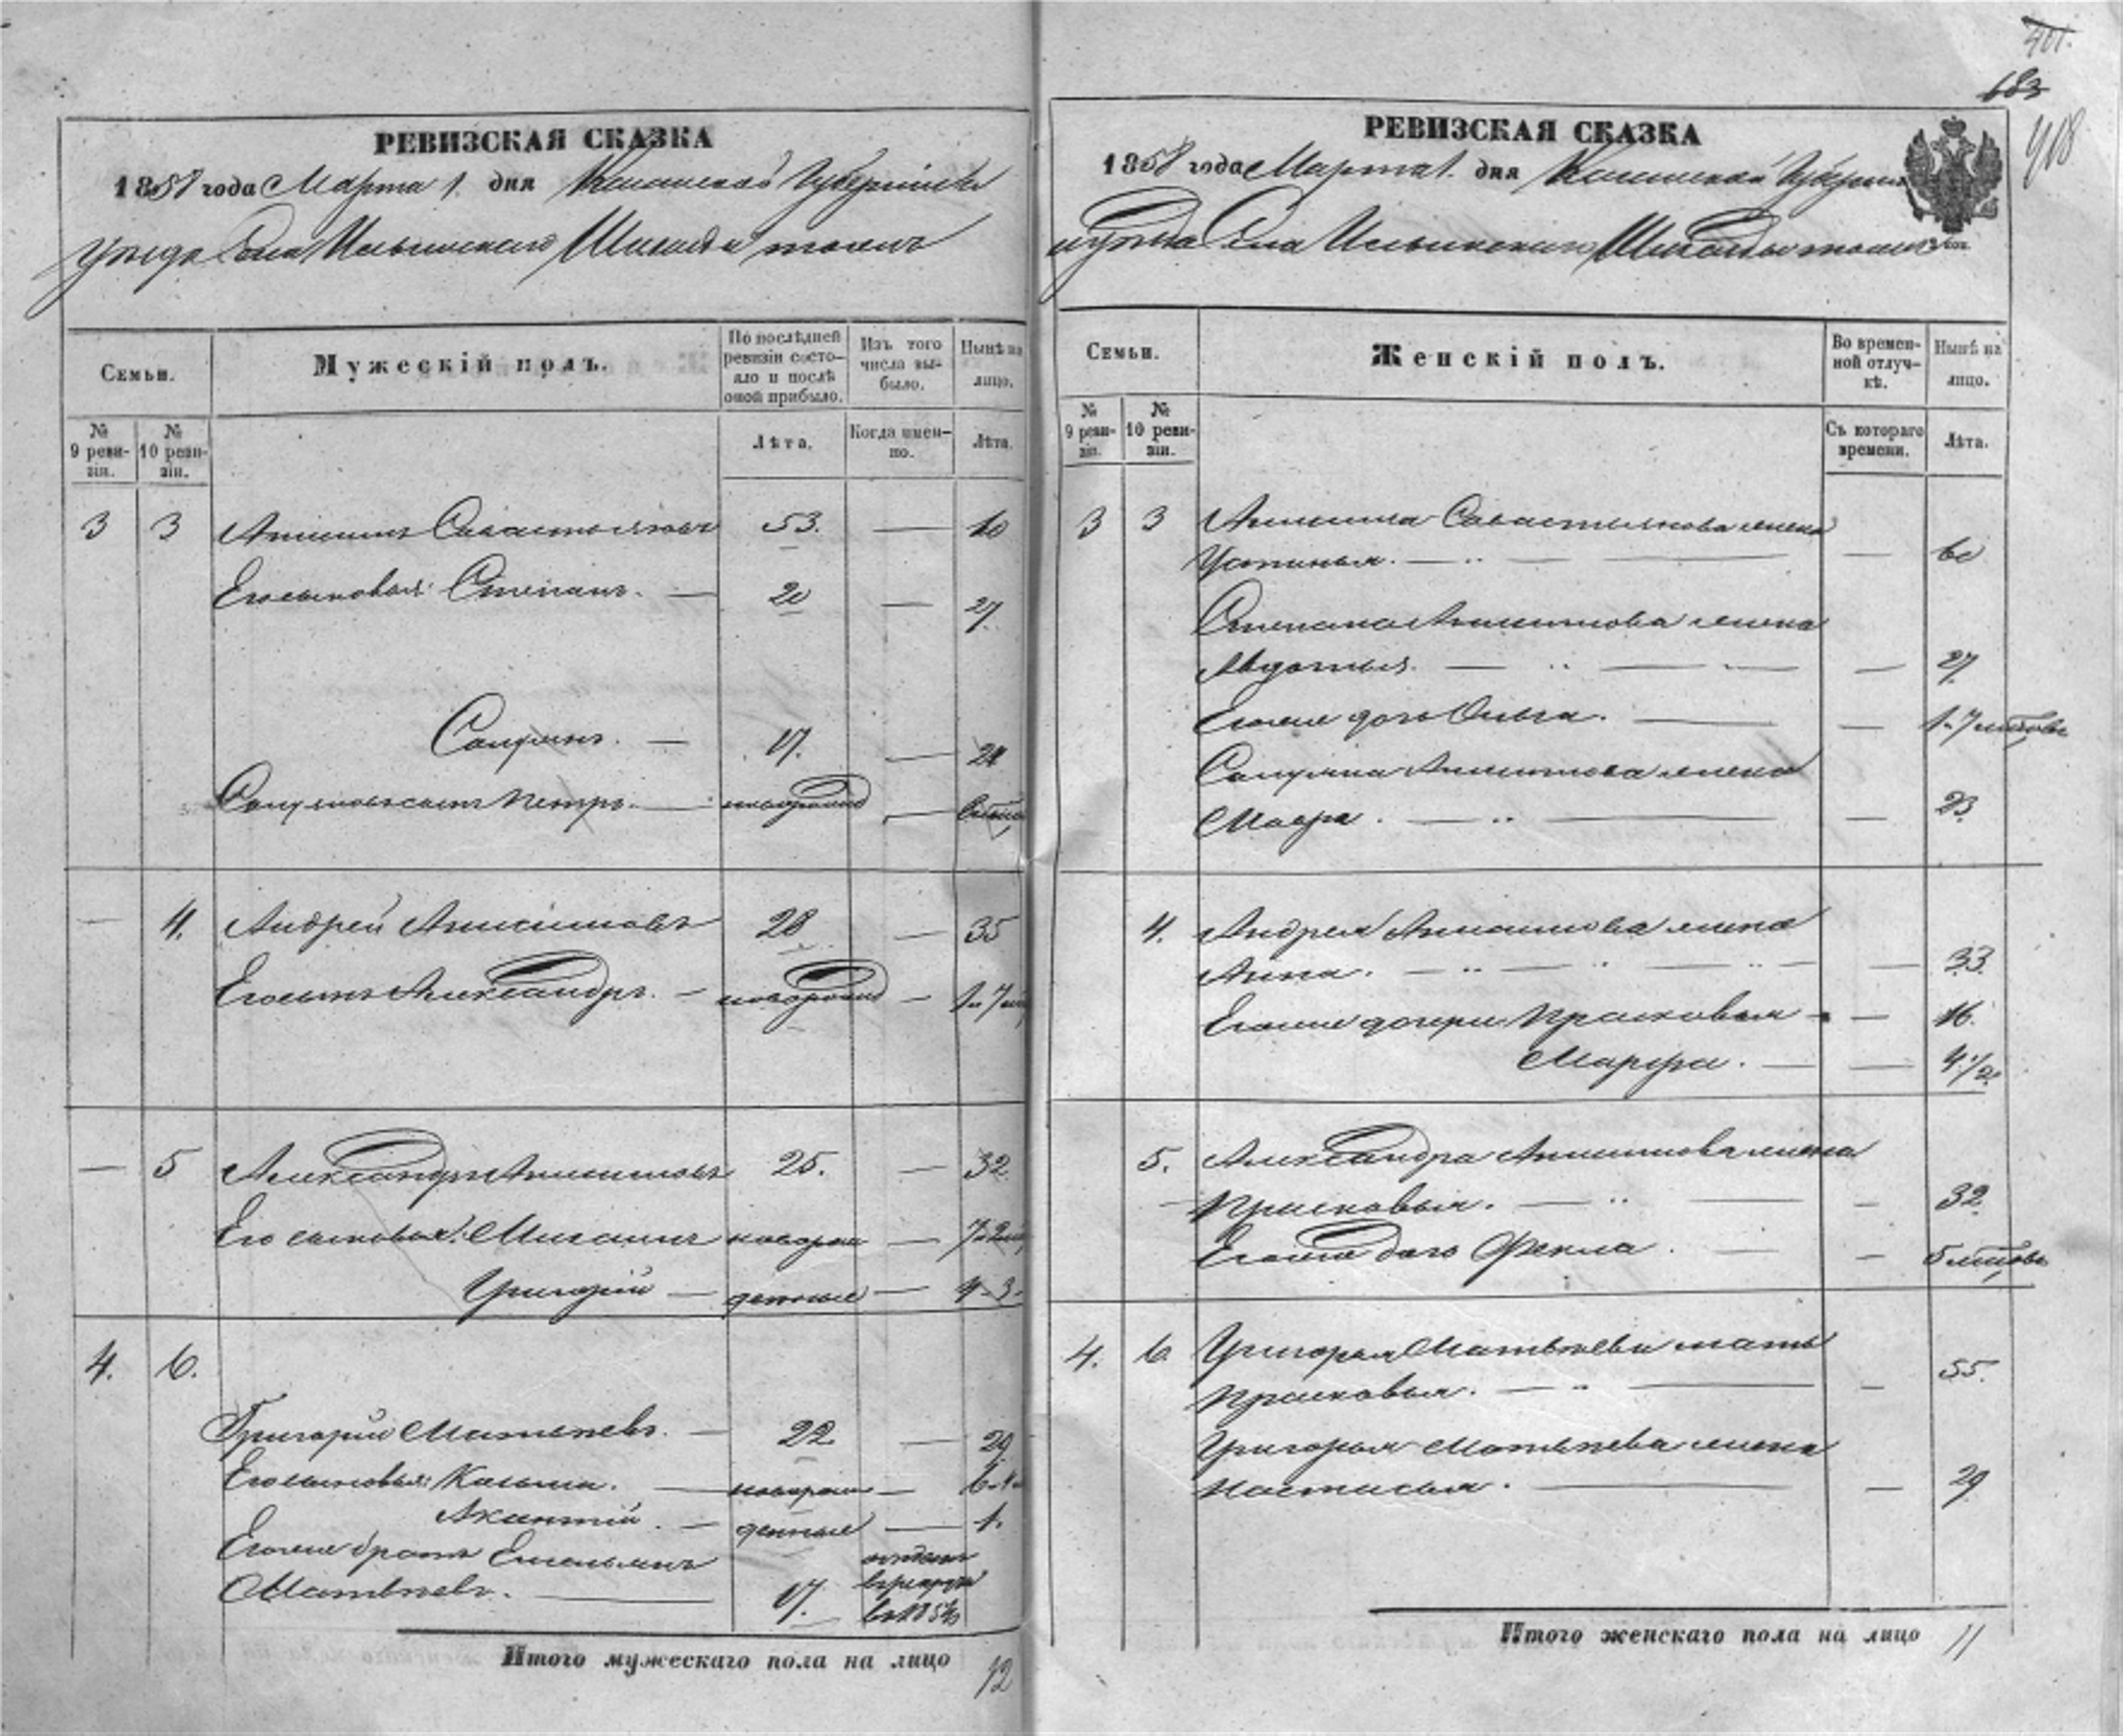 401.
683
418
РЕВИЗСКАЯ СКАЗКА
1858 года Марта 1. дня Казанской Губерніи
уезда Села Ильинскаго Шигалды тожъ
Семьи.
Мужескій полъ.
По послѣдней ревизіи состо-
яло и послѣ оной прибыло.
Изъ того числа вы-
было.
Нынѣ на лицо.
№ 9 реви-
зіи.
№ 10 реви-
зіи.
Лѣта.
Когда имен-
но.
Лѣта.
3 3 Анисимъ Савастьяновъ 53. — 60
Его сыновья: Степанъ. — 20 — 27.
Самуилъ. — 17. — 24
Самуиловъ сынъ Петръ. — новорожд —
— 4. Андрей Анисимовъ 28 — 35
Его сынъ Александръ. — новорожд — 1 и 7
— 5 Александръ Анисимовъ 25. — 32
Его сыновья: Михаилъ новорож —
Григорій — денные — 4-3
4. 6.
Григорій Матвѣевъ. — 22 — 29
Его сыновья: Козьма. — новорож —
денные — 1.
Его же братъ Емельянъ
Матвѣевъ. — 17. отданъ
в рекруты
в 185
Итого мужескаго пола на лицо 12
РЕВИЗСКАЯ СКАЗКА
1858 года Марта 1. дня Казанской Губерніи
уезда Села Ильинскаго Шигалды тожъ
Семьи.
Женскій полъ.
Во времен-
ной отлуч-
кѣ.
Нынѣ на лицо.
№ 9 реви-
зіи.
№ 10 реви-
зіи.
Съ котораго времени.
Лѣта.
3 3 Анисима Савастьянова жена
Устинья. — — 60
Степана Анисимова жена
Авдотья. — — 27
Его же дочь Ольга. — — 1 и 7 мѣсяцовъ
Самуила Анисимова жена
Мавра. — — 23.
4. Андрея Анисимова жена
Анна. — — 33.
Его же дочери Прасковья — — 16.
Марфа. — — 4 1/2
5. Александра Анисимова жена
Прасковья. — — 32
Его же дочь Фекла. — — 5 мѣсяцовъ
4. 6 Григорья Матвѣева мать
Прасковья. — — 55.
Григорья Матвѣева жена
Настасья. — — 29
Итого женскаго пола на лицо 11